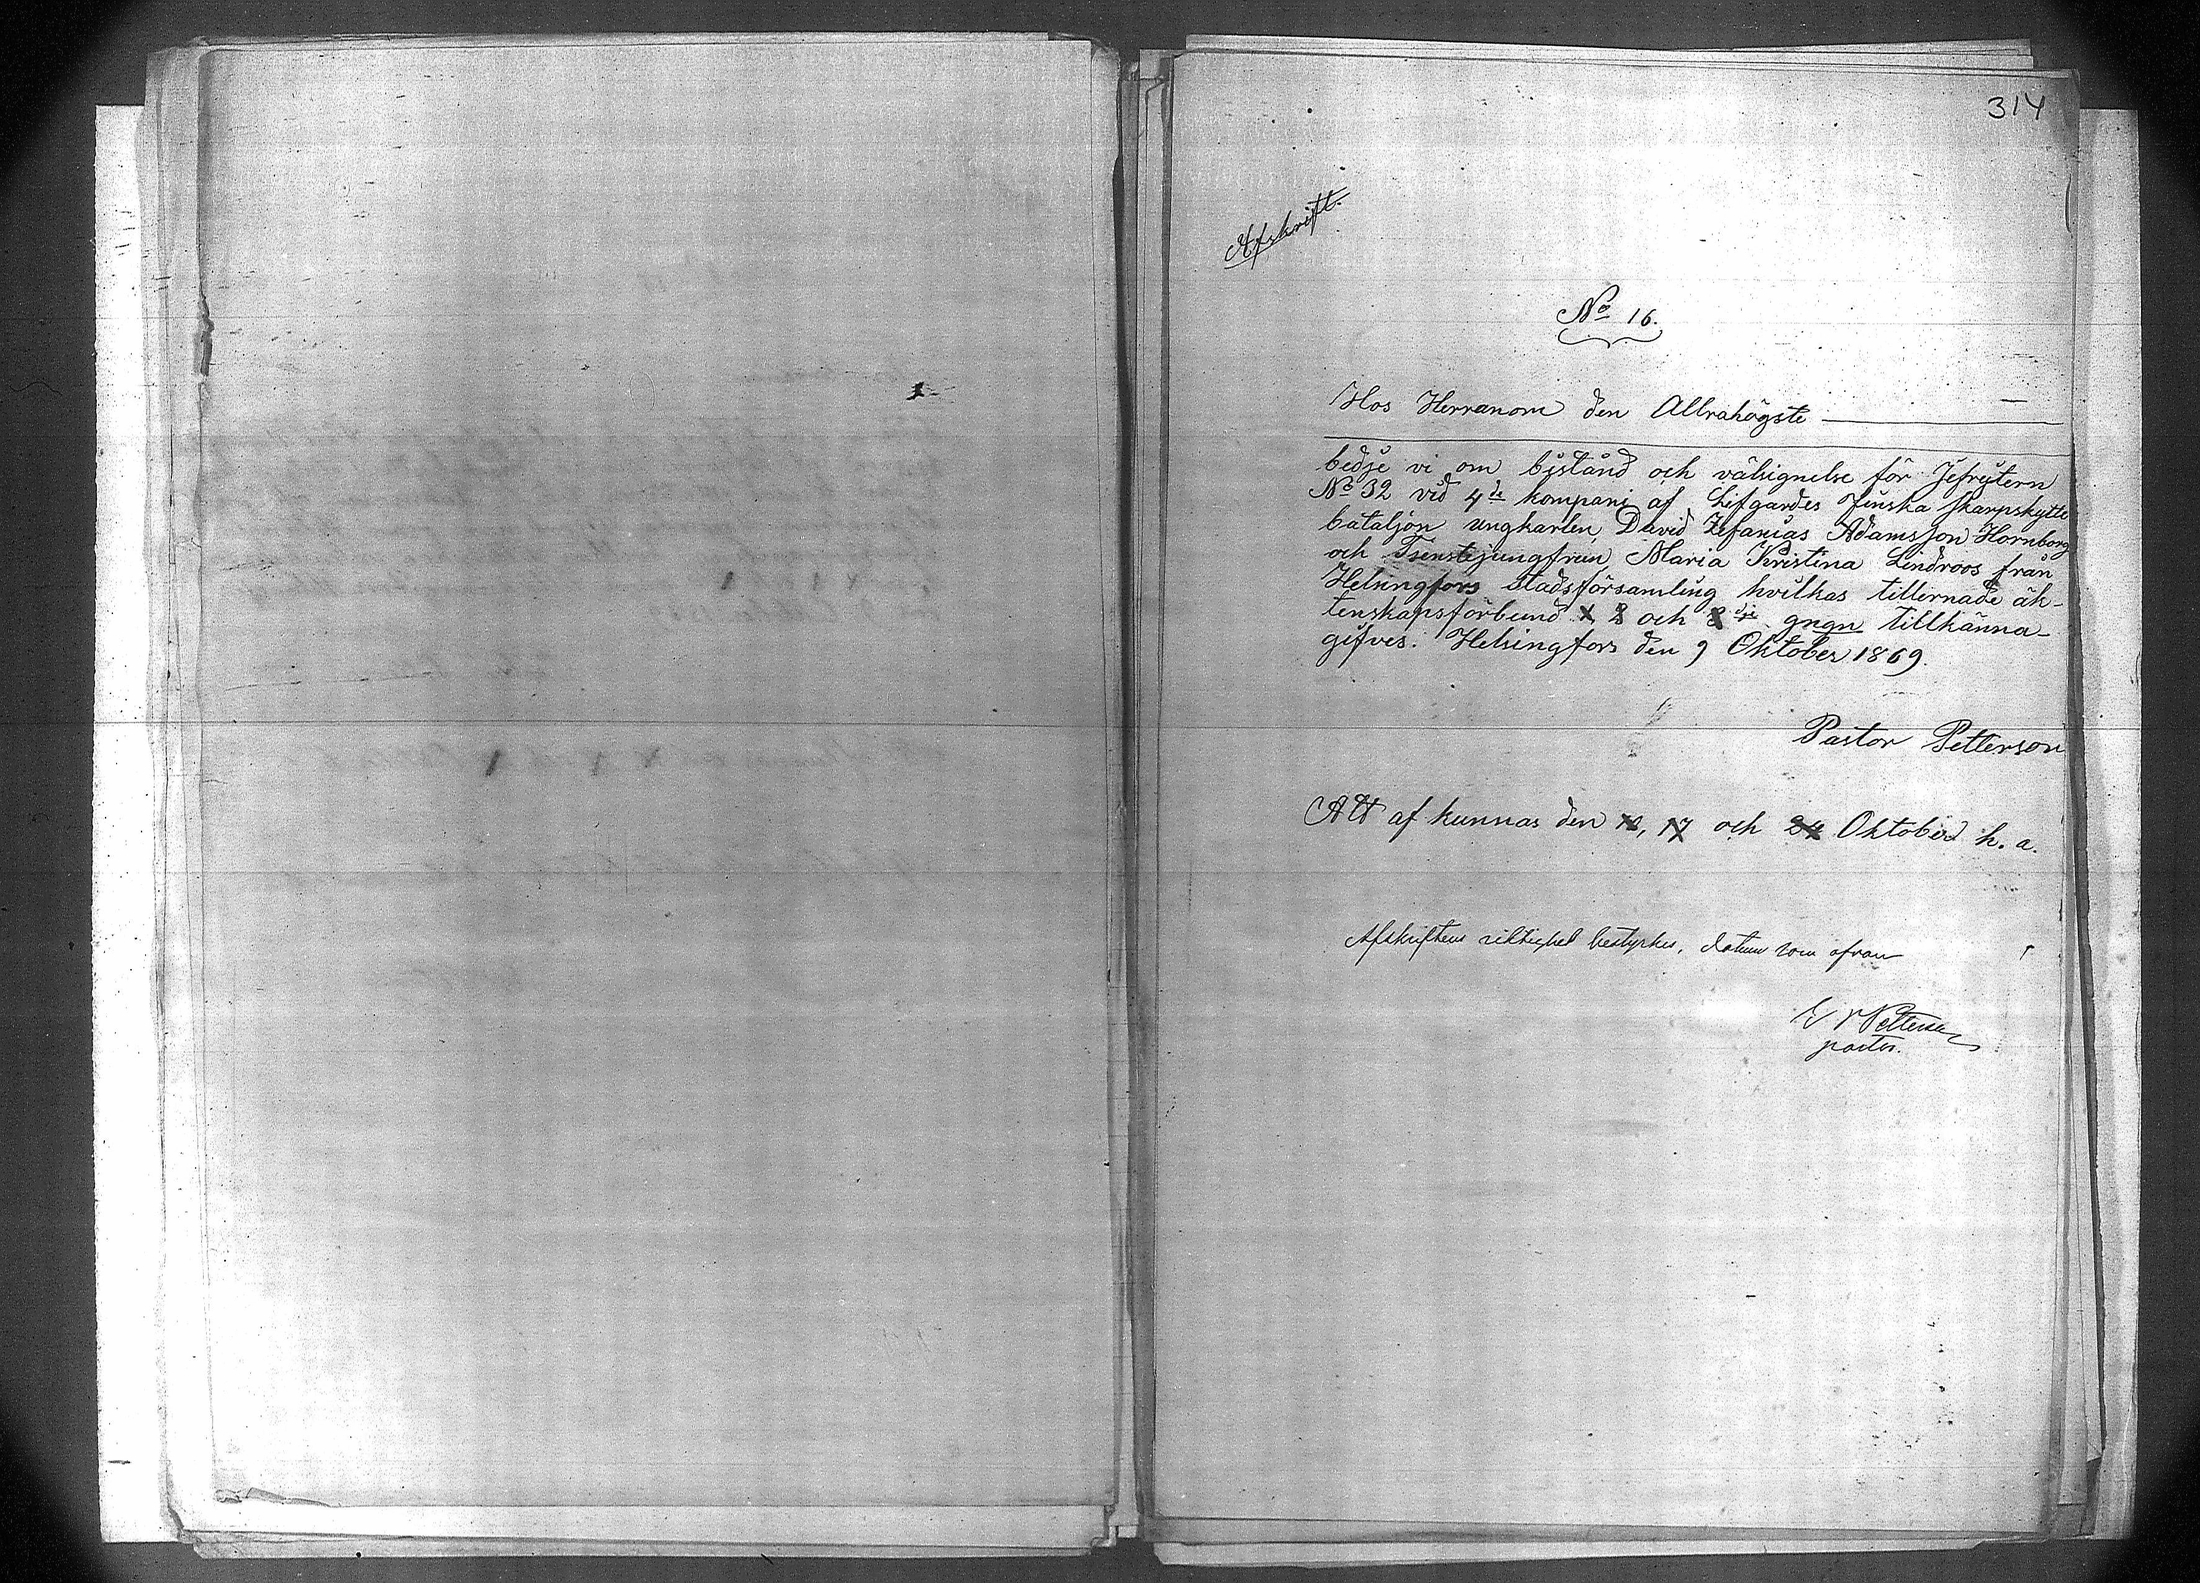 314
Afskrift.
No 16.
Hos Herranom den Allrahögste
bedje vi om bistånd och välsignelse för Jefrejtern
No 32 vid 4de kompani af Lifgardes Finska Skarpskytte
bataljon ungkarlen David Zefanias Adamsson Hornborg
och Tjenstejungfrun Maria Kristina Lindroos från
Helsingfors stadsförsamling hvilkas tillernade äk-
tenskapsförbund 1, 2 och 3dje gngn tillkänna-
gifves. Helsingfors den 9 Oktober 1869.
Pastor Petterson
Att af kunnas den 10, 17 och 24 Oktober h. a.
Afskriftens riktighet bestyrkes, datum som ofvan
Petterson
pastor.